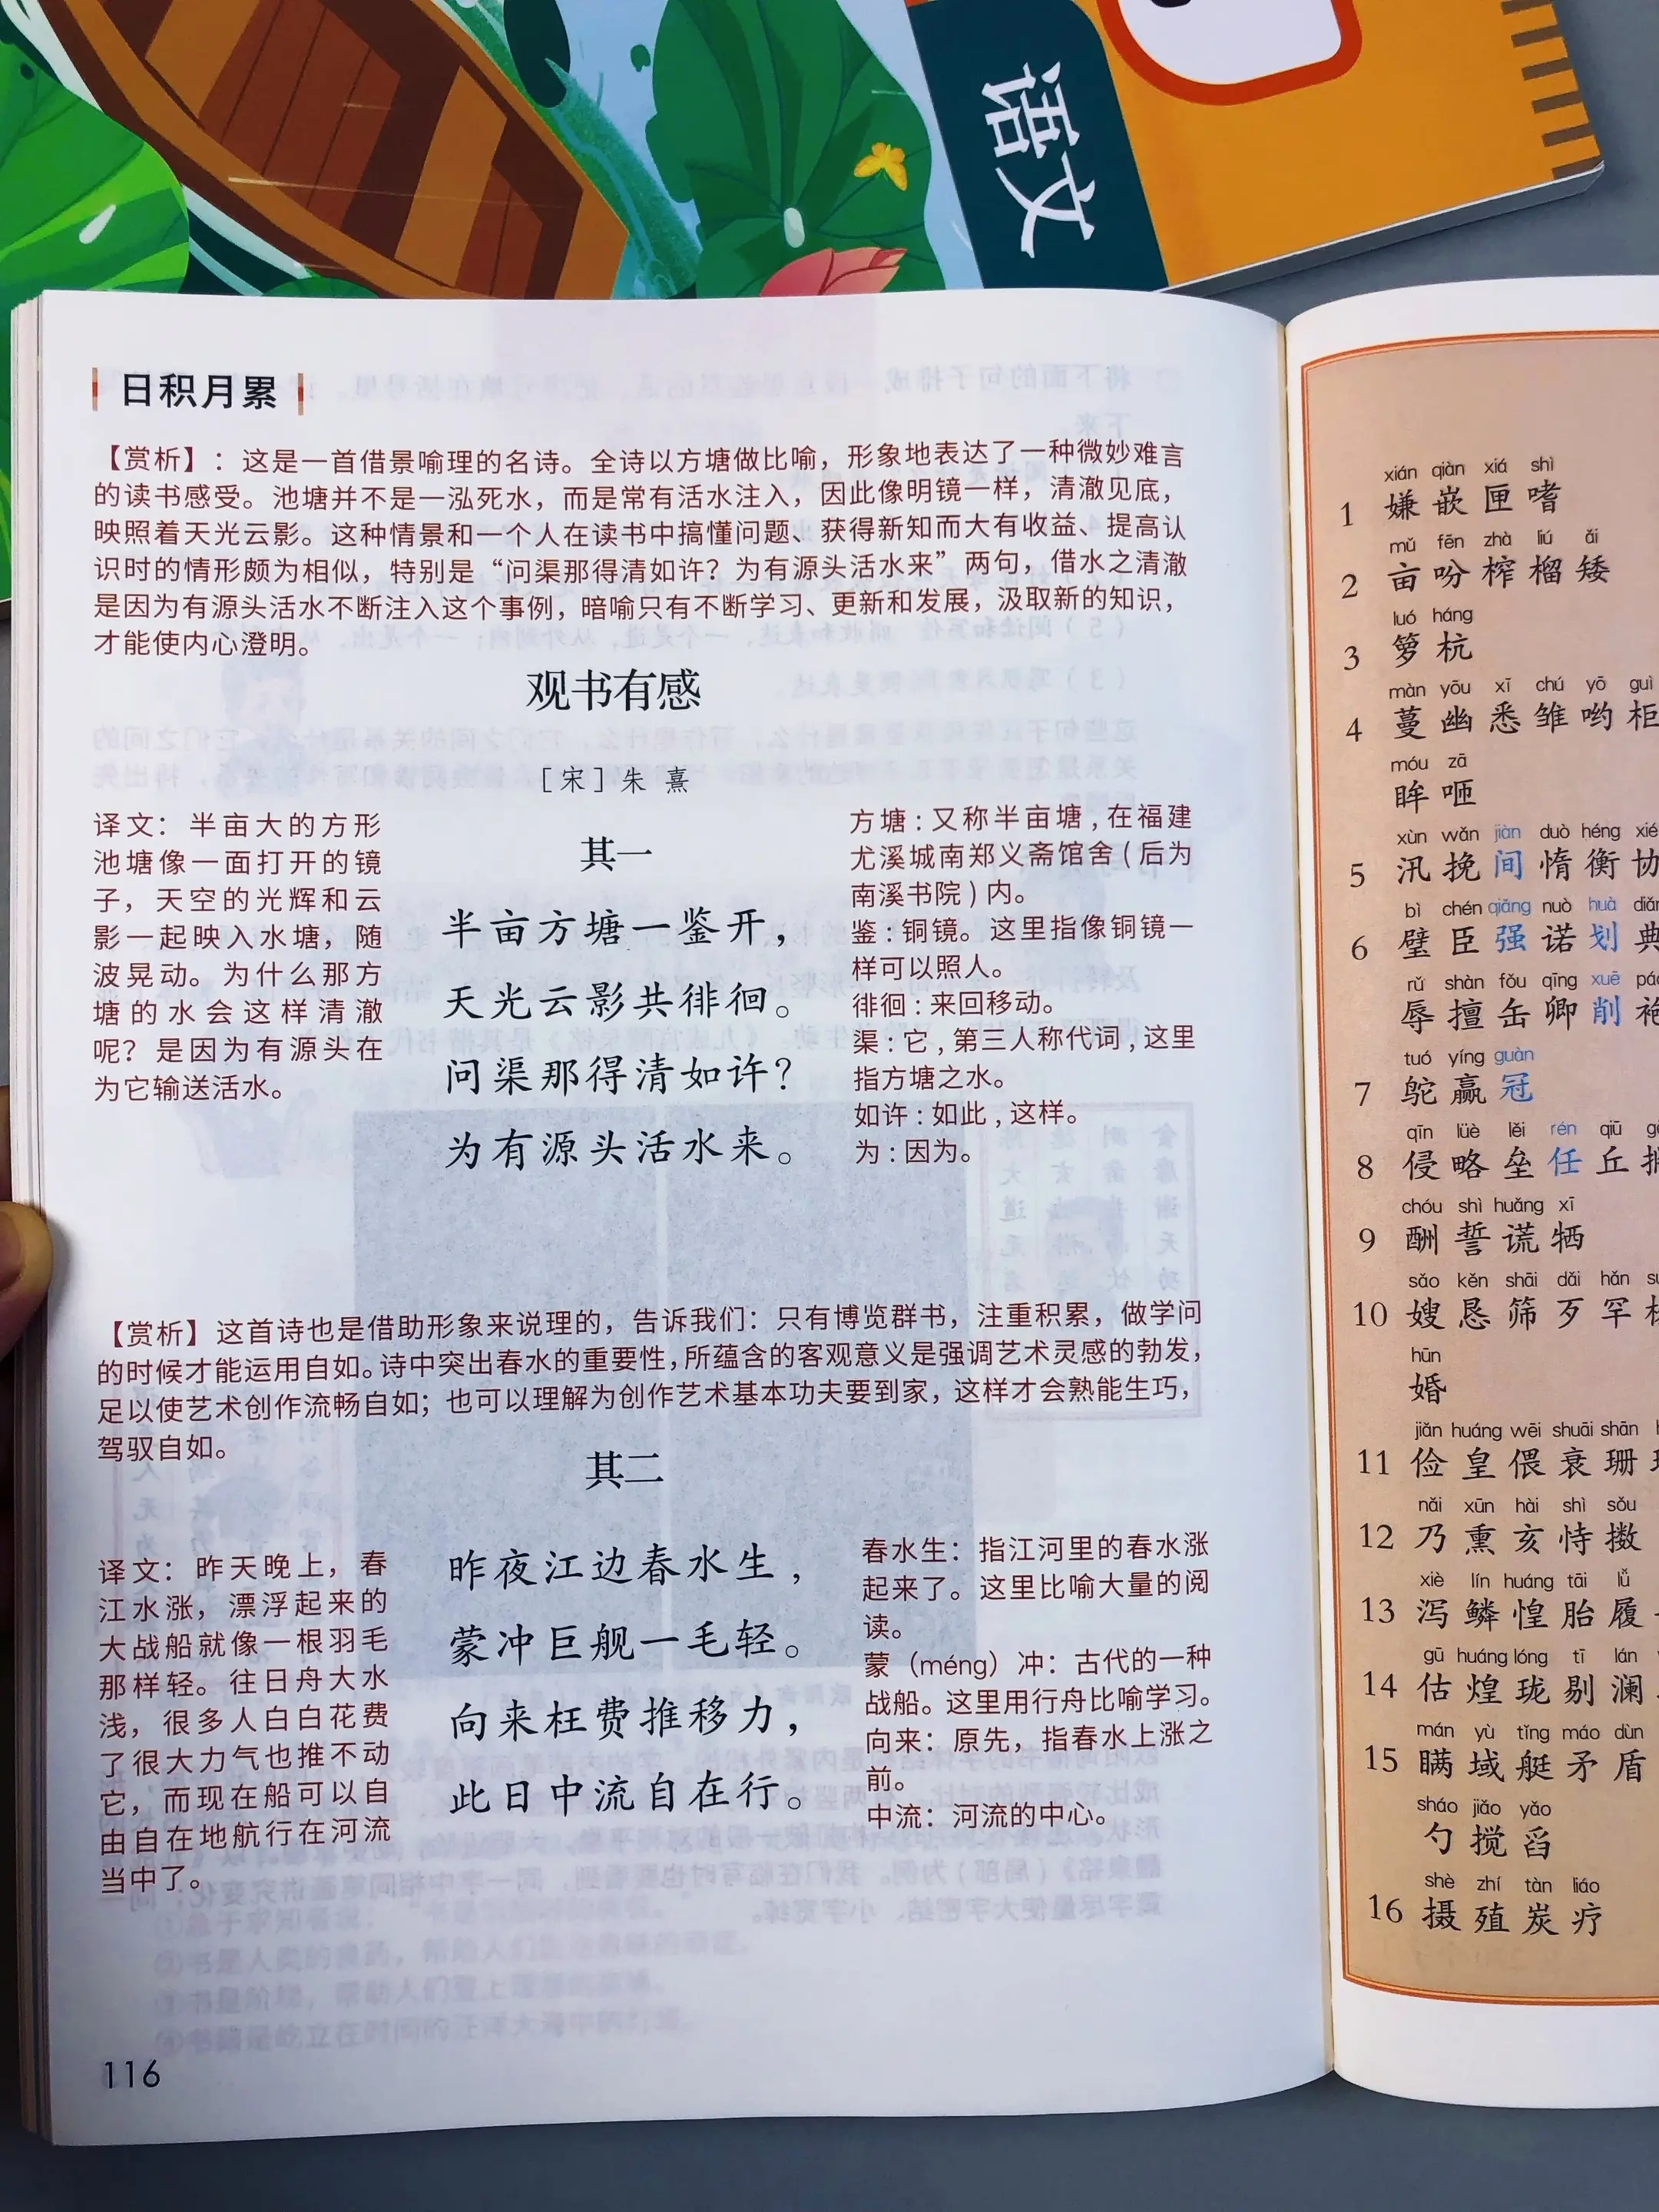 语文
日积月累
【赏析】：这是一首借景喻理的名诗。全诗以方塘做比喻，形象地表达了一种微妙难言
的读书感受。池塘并不是一泓死水，而是常有活水注入，因此像明镜一样，清澈见底，
映照着天光云影。这种情景和一个人在读书中搞懂问题、获得新知而大有收益、提高认
识时的情形颇为相似，特别是“问渠那得清如许？为有源头活水来”两句，借水之清澈
是因为有源头活水不断注入这个事例，暗喻只有不断学习、更新和发展，汲取新的知识，
才能使内心澄明。
观书有感
［宋］朱熹
译文：半亩大的方形
池塘像一面打开的镜
子，天空的光辉和云
影一起映入水塘，随
波晃动。为什么那方
塘的水会这样清澈
呢？是因为有源头在
为它输送活水。
其一
半亩方塘一鉴开，
天光云影共徘徊。
问渠那得清如许？
为有源头活水来。
方塘：又称半亩塘，在福建
尤溪城南郑义斋馆舍（后为
南溪书院）内。
鉴：铜镜。这里指像铜镜一
样可以照人。
徘徊：来回移动。
渠：它，第三人称代词，这里
指方塘之水。
如许：如此，这样。
为：因为。
【赏析】这首诗也是借助形象来说理的，告诉我们：只有博览群书，注重积累，做学问
的时候才能运用自如。诗中突出春水的重要性，所蕴含的客观意义是强调艺术灵感的勃发，
足以使艺术创作流畅自如；也可以理解为创作艺术基本功夫要到家，这样才会熟能生巧，
驾驭自如。
其二
译文：昨天晚上，春
江水涨，漂浮起来的
大战船就像一根羽毛
那样轻。往日舟大水
浅，很多人白白花费
了很大力气也推不动
它，而现在船可以自
由自在地航行在河流
当中了。
昨夜江边春水生，
蒙冲巨舰一毛轻。
向来枉费推移力，
此日中流自在行。
春水生：指江河里的春水涨
起来了。这里比喻大量的阅
读。
蒙（méng）冲：古代的一种
战船。这里用行舟比喻学习。
向来：原先，指春水上涨之
前。
中流：河流的中心。
116
xián qiàn xiá shì
1 嫌嵌匣嗜
mǔ fēn zhà liú ǎi
2 亩吩榨榴矮
luó háng
3 箩杭
màn yōu xī chú yō guì
4 蔓幽悉雏哟柜
móu zā
眸咂
xùn wǎn jiàn duò héng xié
5 汛挽间惰衡协
bì chén qiǎng nuò huà diǎn
6 璧臣强诺划典
rǔ shàn fǒu qīng xuē páo
辱擅缶卿削袍
tuó yíng guàn
7 鸵赢冠
qīn lüè lěi rén qiū
8 侵略垒任丘
chóu shì huǎng xī
9 酬誓谎牺
sǎo kěn shāi dǎi hǎn
10 嫂恳筛歹罕
hūn
婚
jiǎn huáng wēi shuāi shān
11 俭皇偎衰珊
nǎi xūn hài shì sǒu
12 乃熏亥恃擞
xiè lín huáng tāi lǚ
13 泻鳞惶胎履
gū huáng lóng tī lán
14 估煌珑剔澜
mán yù tǐng máo dùn
15 瞒域艇矛盾
sháo jiǎo yǎo
勺搅舀
shè zhí tàn liáo
16 摄殖炭疗